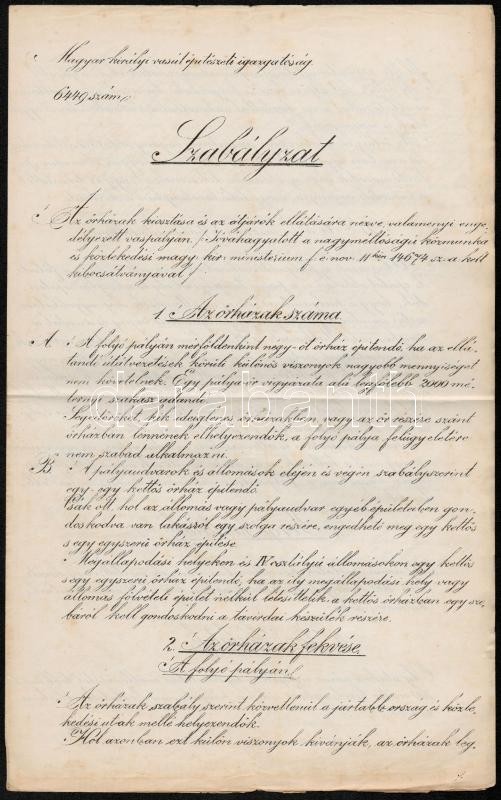 Magyar királyi vasút építészeti igazgatóság.
6449 szám/.
Szabályzat
Az őrházak kiosztása és az átjárók ellátására nézve, valamenyi enge-
délyezett vaspályán. /: Jóváhagyatott a nagyméltóságú közmunka
és közlekedési magy. kir. ministerium f. é. nov. 11kén 14674 sz. a. kelt
kibocsátványával :/
1. Az őrházak száma.
A. A folyó pályán mérföldenkint négy-öt őrház építendő, ha az ellá-
tandó útátvezetések körüli különös viszonyok nagyobb mennyiséget
nem követelnek. Egy pályaőr vigyázata alá legfölebb 2000 mé-
ternyi szakasz adandó.
Segédőröket, kik ideiglenes őrházakban vagy az őr részére szánt
őrházban lennének elhelyezendők, a folyó pálya felügyeletére
nem szabad alkalmazni.
B. A pályaudvarok és állomások elején és végén szabályszerint
egy-egy kettős őrház építendő.
Csak ott, hol az állomás vagy pályaudvar egyéb épületeiben gon-
doskodva van lakásról egy szolga részére, engedhető meg egy kettős
s egy egyszerű őrház építése.
Megállapodási helyeken és IV osztályú állomásokon egy kettős
s egy egyszerű őrház építendő, ha az ily megállapodási hely vagy
állomás fölvételi épület nélkül létesíttetik a kettős őrházban egy szo-
báról kell gondoskodni a távirdai készülék részére.
2. Az őrházak fekvése.
A folyó pályán/.
Az őrházak szabály szerint közvetlenül a jártabb ország és közle-
kedési utak mellé helyezendők.
Hol azonban ezt külön viszonyok kívánják, az őrházak leg-